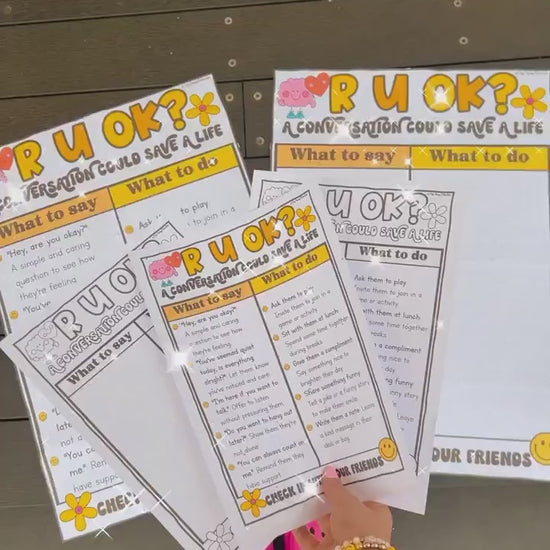 R U OK?
A CONVERSATION COULD SAVE A LIFE
What to say
What to do
"Hey, are you okay?"
A simple and caring
question to see how
they're feeling
"You've
Ask to play
to join in a
not a
"You c
me" Re
have suppo
CHECK
R U OK?
A CONVERSATION COULD SAVE A LIFE
What to say
What to do
OUR FRIENDS
R U O
A CONVERSATION
What to say
R U OK?
A CONVERSATION COULD SAVE A LIFE
What to do
Ask them to play
Invite them to join in a
game or activity
with them at lunch
some time together
breaks
a compliment
ing nice to
day
ing funny
story
R U OK?
A CONVERSATION COULD SAVE A LIFE
What to say
"Hey, are you okay?"
A simple and caring
question to see how
they're feeling
"You've seemed quiet
today, is everything
alright?" Let them know
you've noticed and care
"I'm here if you want to
talk." Offer to listen
without pressuring them
"Do you want to hang out
later?" Show them they're
not alone
"You can always count on
me" Remind them they
have support
What to do
Ask them to play
Invite them to join in a
game or activity
Sit with them at lunch
Spend some time together
during breaks
Give them a compliment
Say something nice to
brighten their day
Share something funny
Tell a joke or a funny story
to make them smile
Write them a note Leave
a kind message in their
desk or bag
CHECK IN WITH YOUR FRIENDS